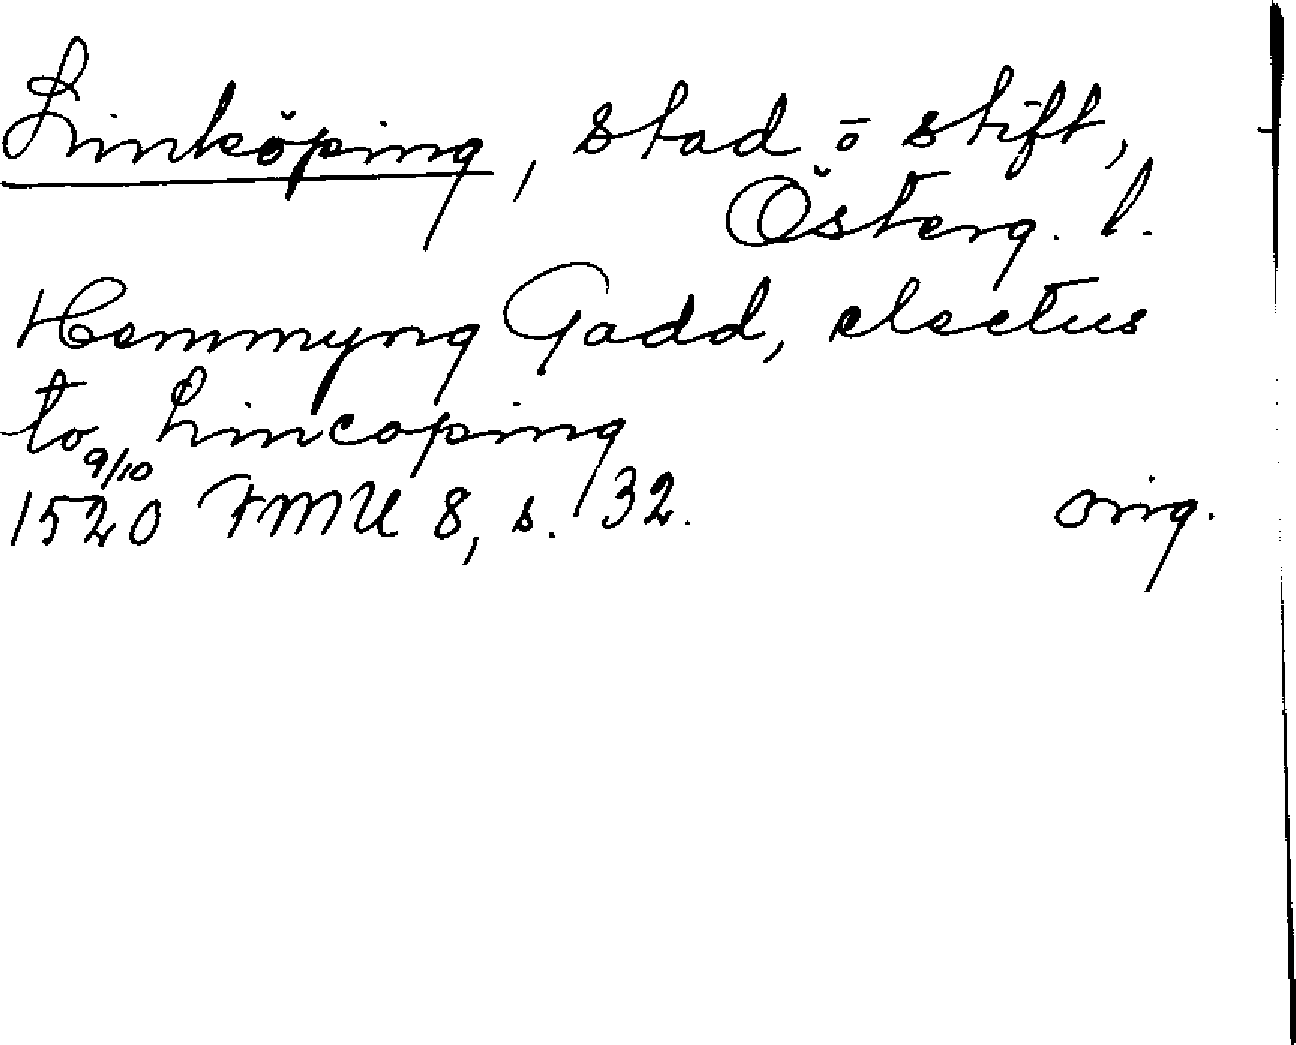 Linköping, stad ō stift,
Österg. l.
Hemmyng Gadd, electus
to Lincoping
9/10
1520 FMU 8, s. 132. orig.